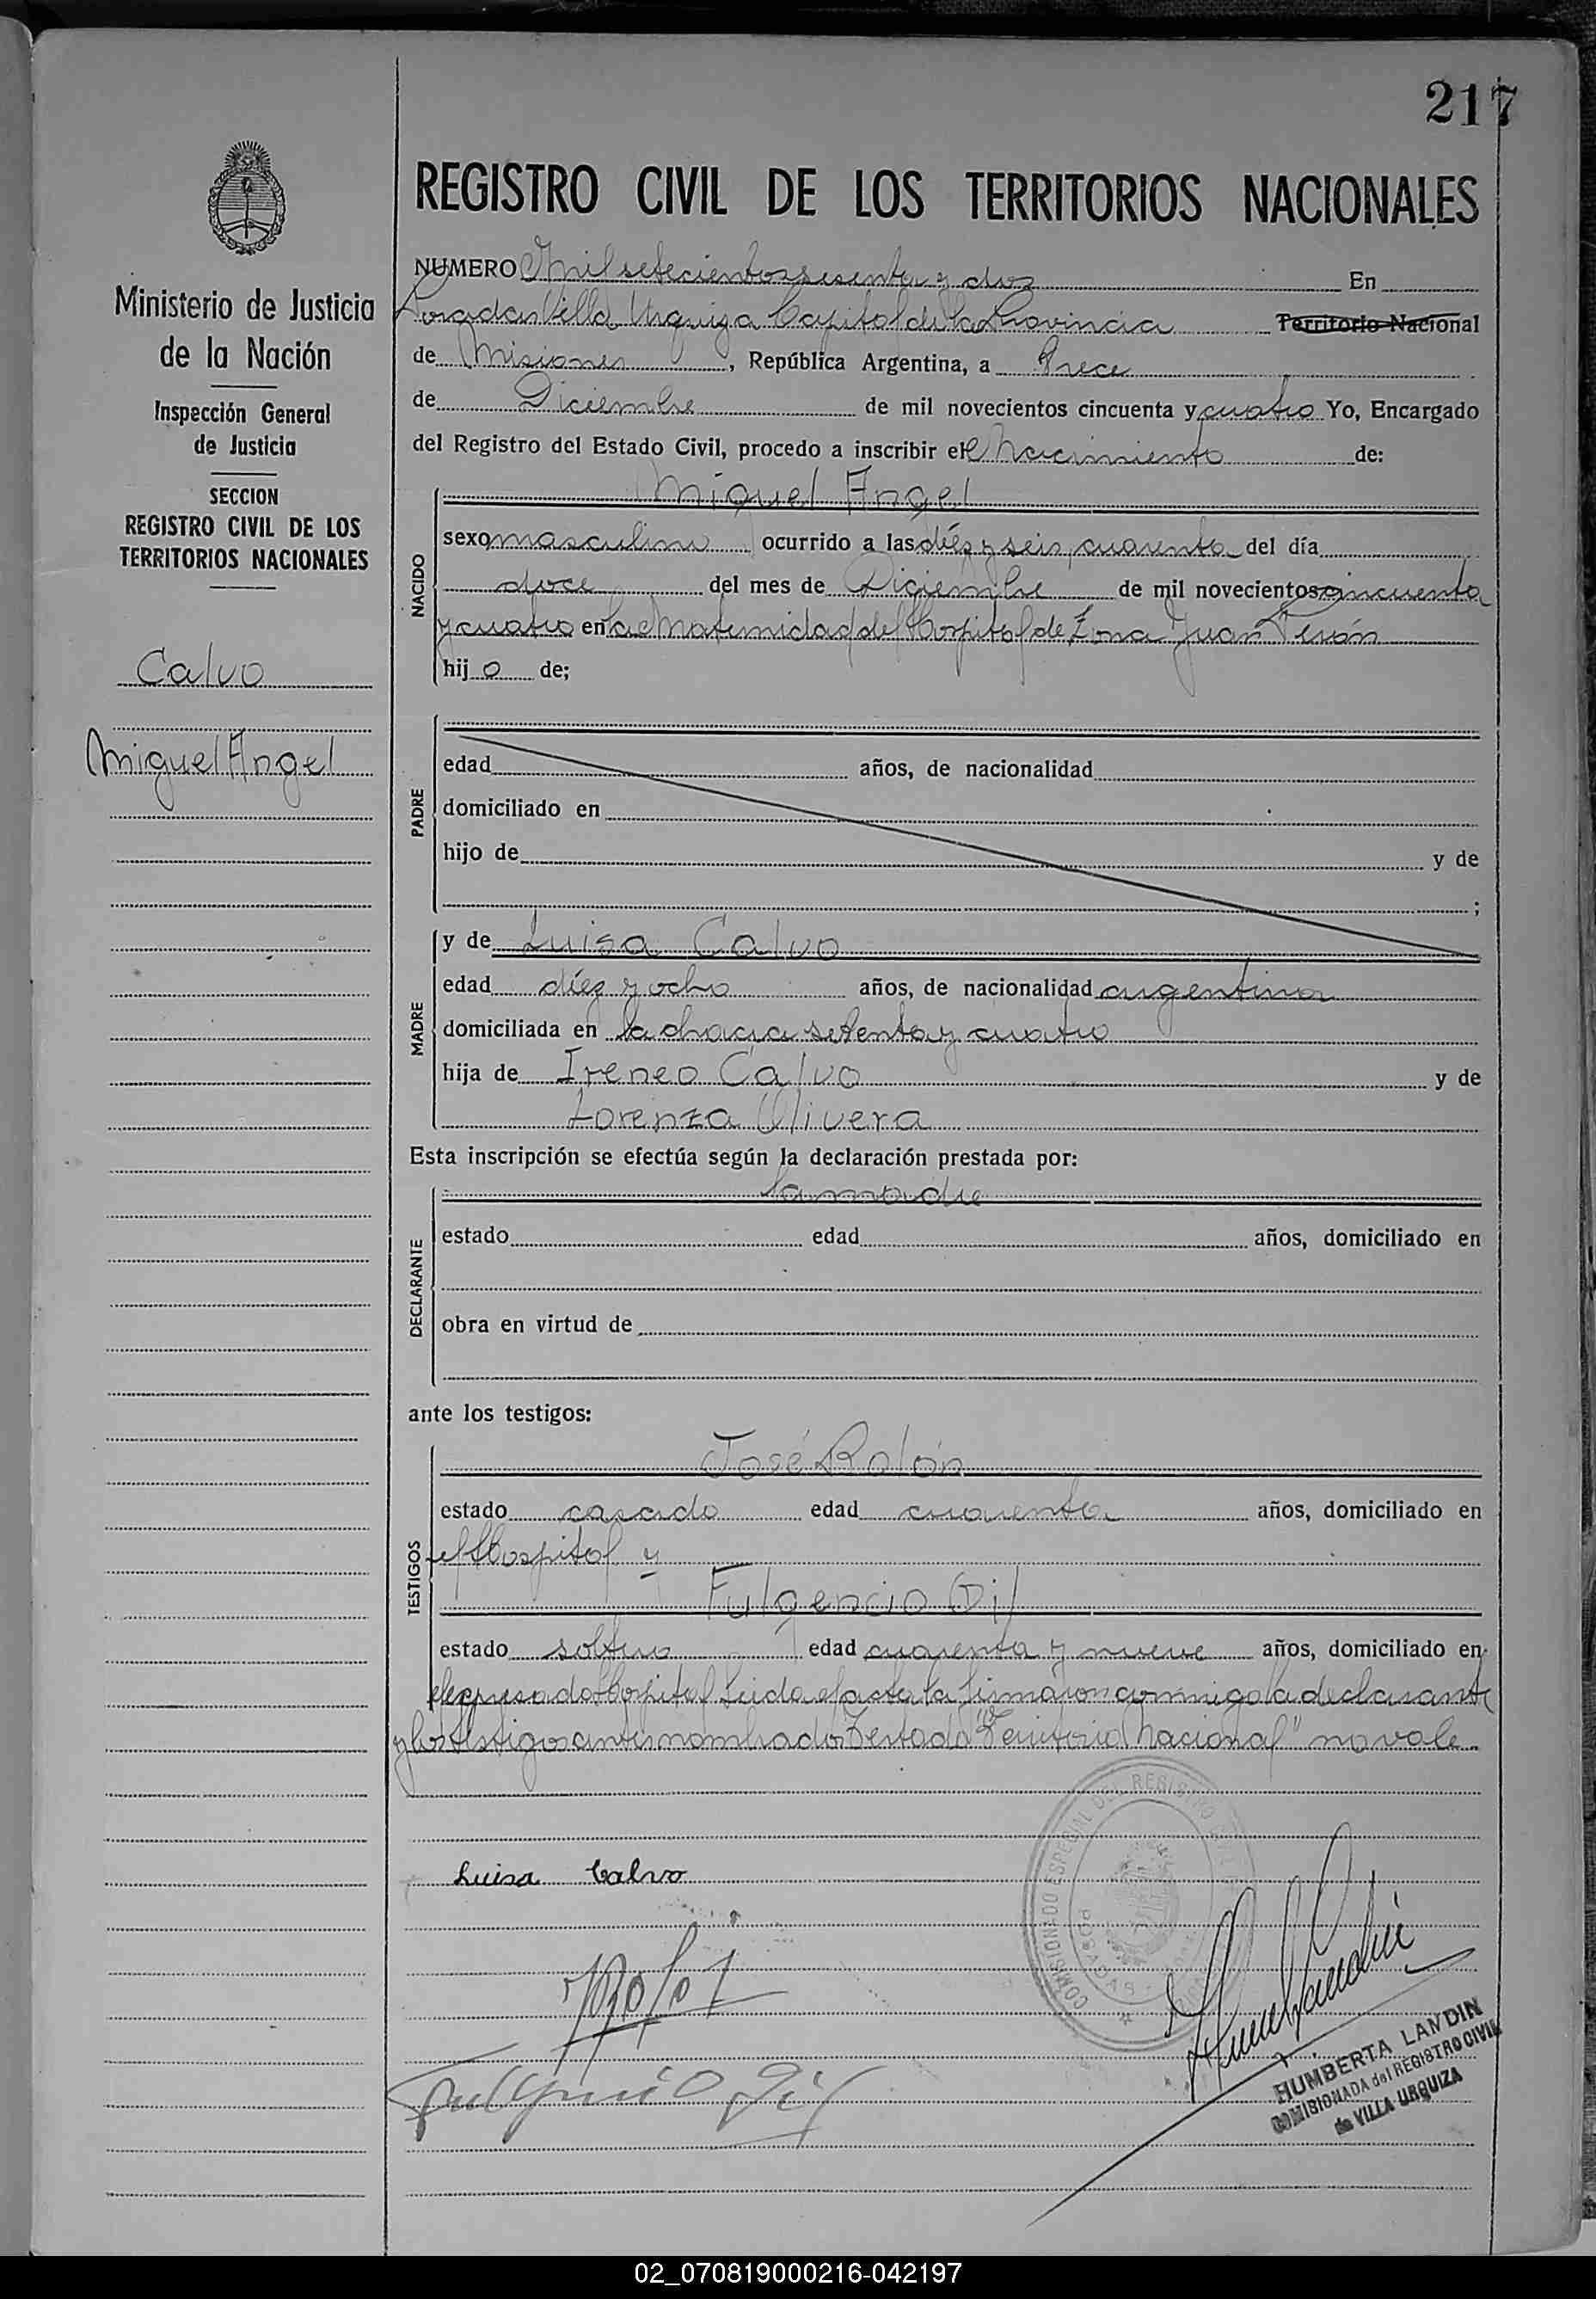 217
REGISTRO CIVIL DE LOS TERRITORIOS NACIONALES
Ministerio de Justicia
de la Nación
Inspección General
de Justicia
SECCION
REGISTRO CIVIL DE LOS
TERRITORIOS NACIONALES
Calvo
Miguel Angel
NUMERO Mil setecientos sesenta y dos En
Posadas Villa Urquiza Capital de la Provincia Territorio Nacional
de Misiones, República Argentina, a Trece
de Diciembre de mil novecientos cincuenta y cuatro Yo, Encargado
del Registro del Estado Civil, procedo a inscribir el Nacimiento de:
NACIDO
Miguel Angel
sexo masculino ocurrido a las diéz y seis, cuarenta del día
doce del mes de Diciembre de mil novecientos cincuenta
y cuatro en la Maternidad del Hospital de Zona Juan Perón
hijo de;
PADRE
edad años, de nacionalidad
domiciliado en
hijo de y de
;
MADRE
y de Luisa Calvo
edad diéz y ocho años, de nacionalidad argentina
domiciliada en la chacra setenta y cuatro
hija de Ireneo Calvo y de
Lorenza Olivera
Esta inscripción se efectúa según la declaración prestada por:
DECLARANTE
la madre
estado edad años, domiciliado en
obra en virtud de
ante los testigos:
TESTIGOS
José Rolón
estado casado edad cuarenta años, domiciliado en
el Hospital y
Fulgencio Gil
estado soltero edad cuarenta y nueve años, domiciliado en
el expresado Hospital Leida el acta la firmaron conmigo la declarante
y los testigos antes nombrados Testado "Territorio Nacional" no vale.
Luisa Calvo
COMISIONADO ESPECIAL DEL REGISTRO CIVIL
POSADAS
Fulgencio Gil
HUMBERTA LANDIN
COMISIONADA del REGISTRO CIVIL
de VILLA URQUIZA
02_070819000216-042197